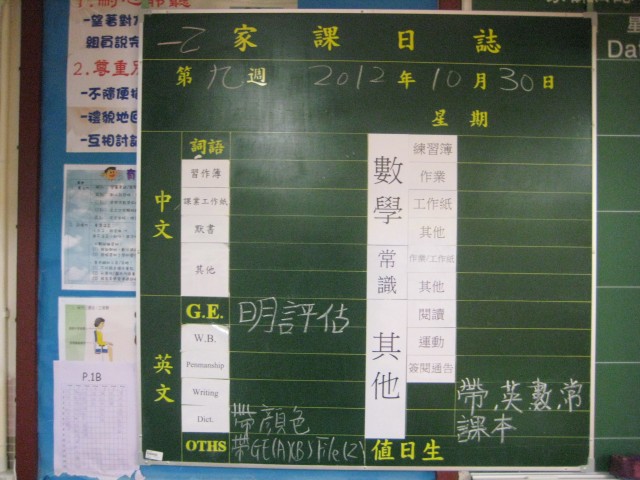 2.尊重別
-不隨便插
-禮貌地回
-互相討論
-望著對方
組員說完
P.1B
一乙 家課日誌
第九週 2012年10月30日
星期
中文
詞語
習作簿
課業工作紙
默書
其他
英文
G.E. 明評估
W.B.
Penmanship
Writing
Dict. 帶顏色
OTHS 帶GE(A)(B) File(2)
數學
練習簿
作業
工作紙
其他
常識
作業/工作紙
其他
其他
閱讀
運動
簽閱通告
帶,英,數,常
課本
值日生
星
Dat